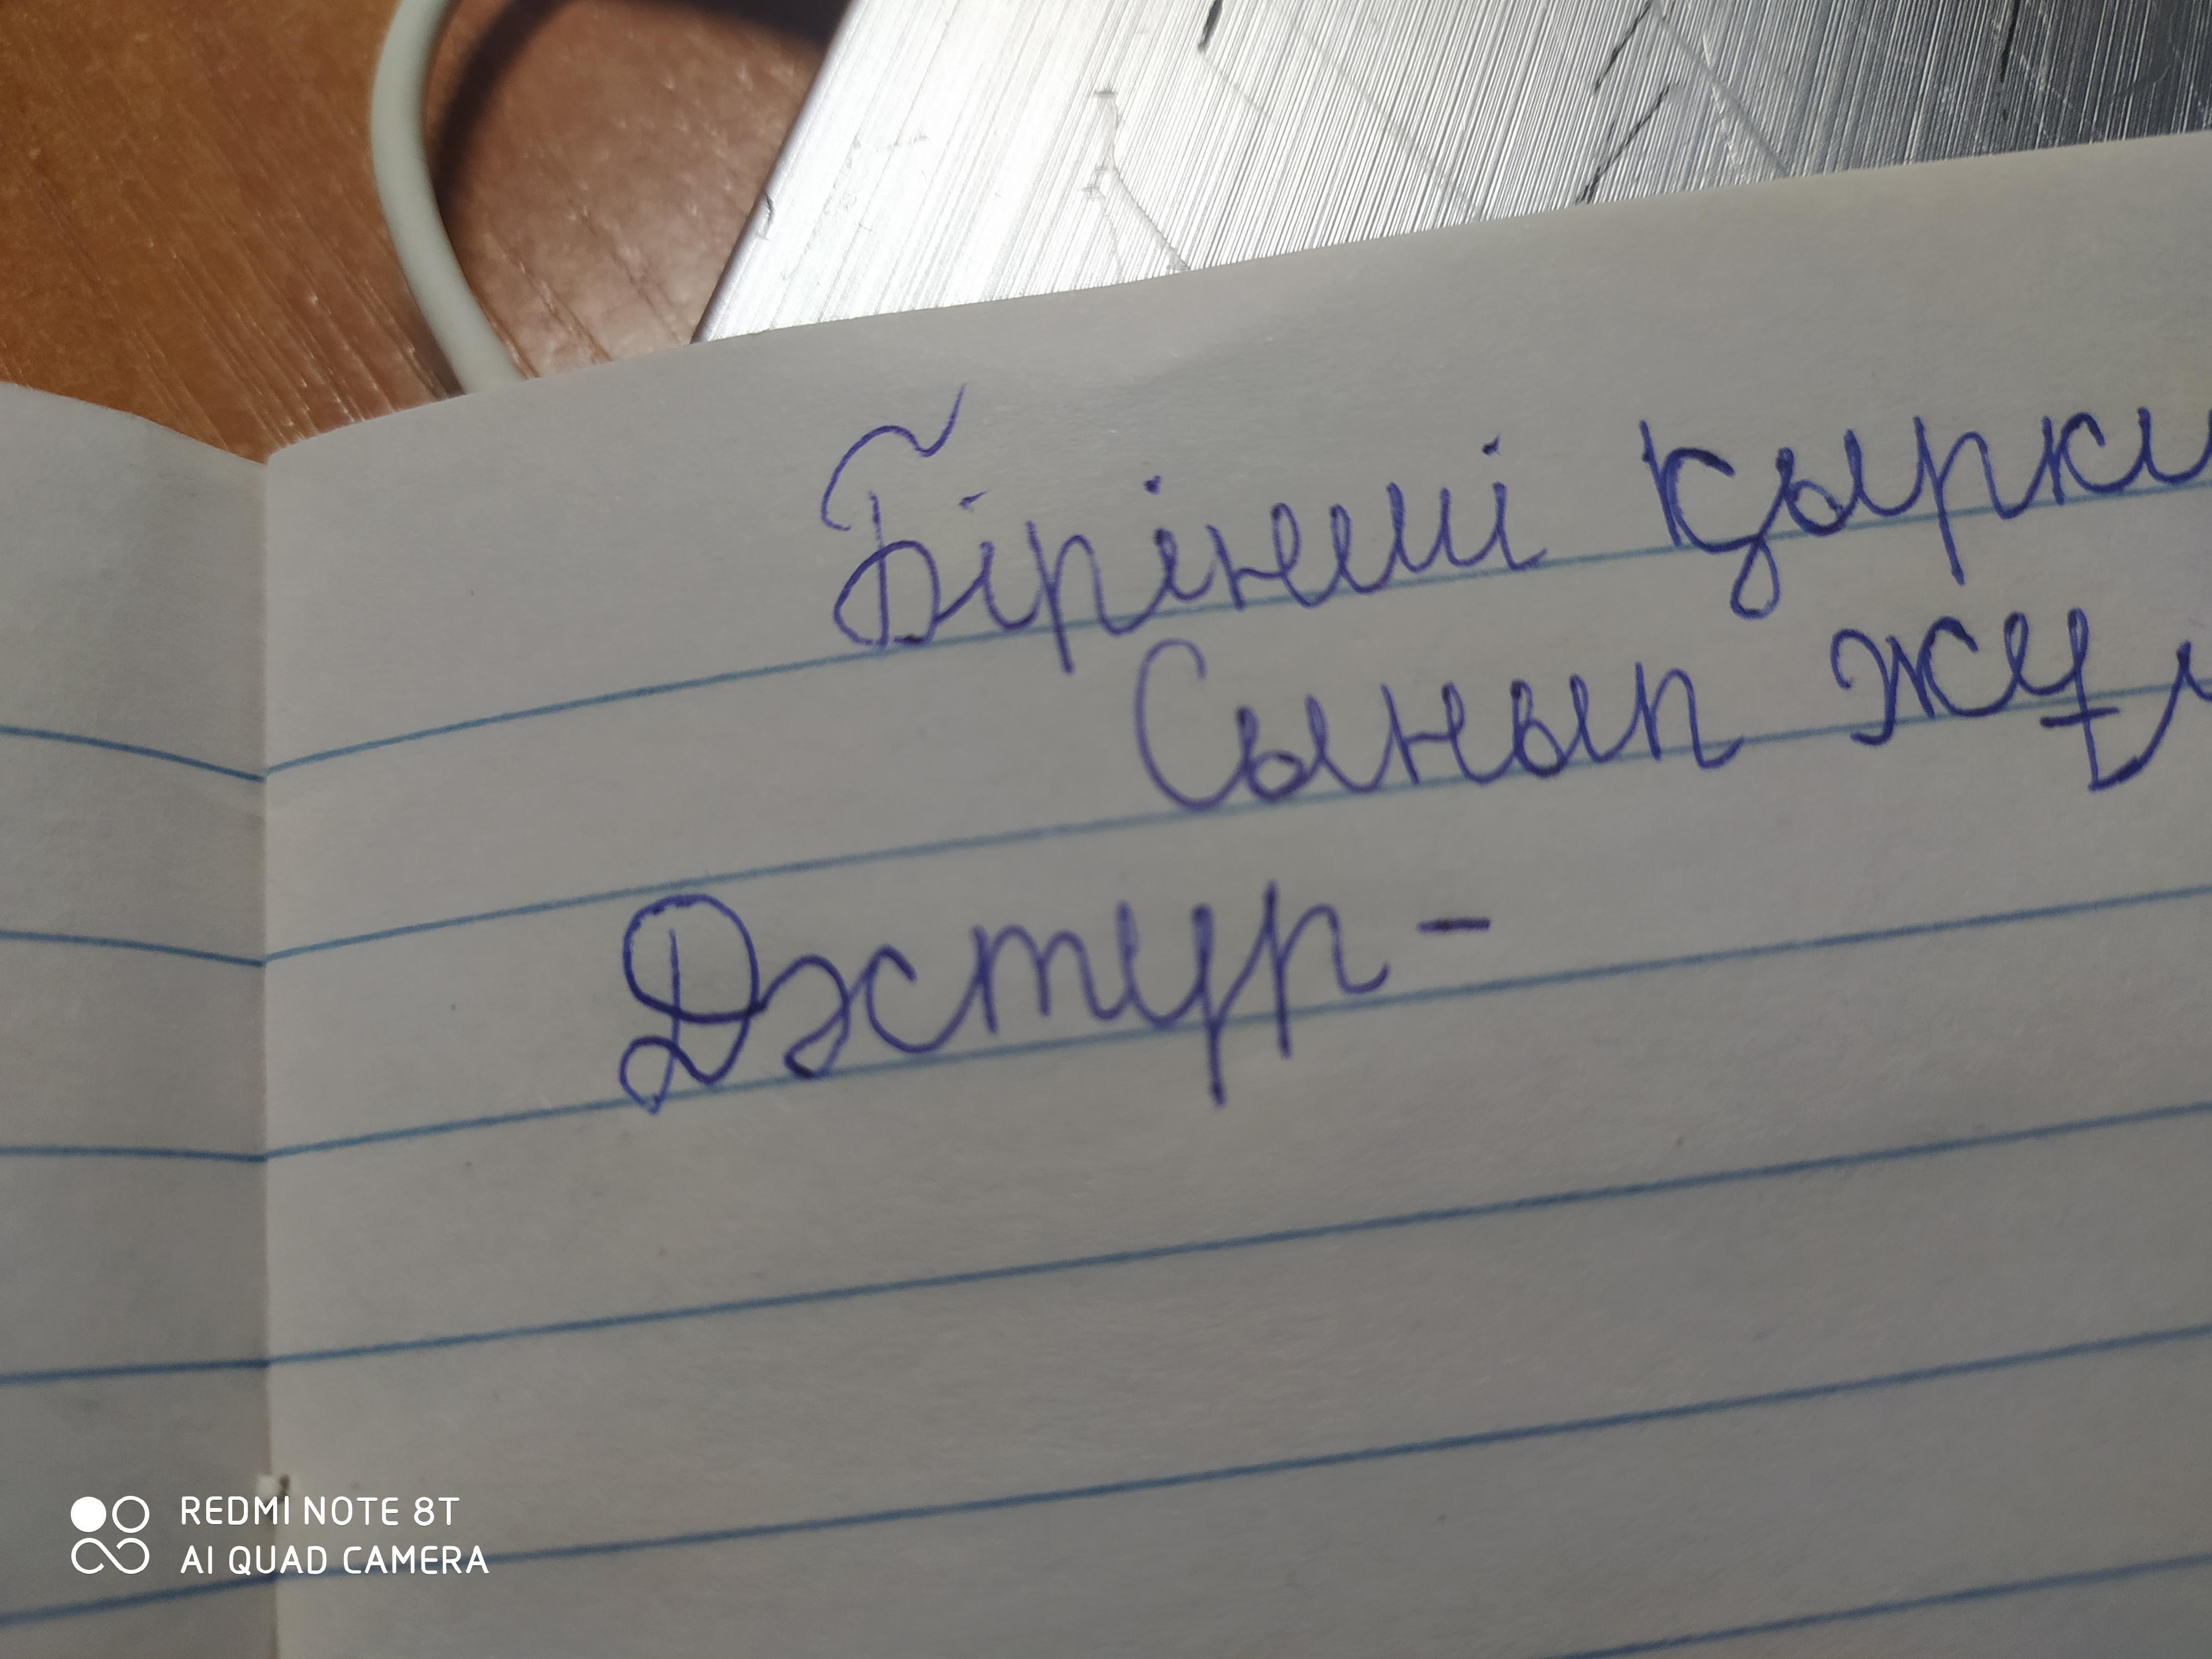 Бірінші қырки
Сынып жұ
Дәстүр -
REDMI NOTE 8T
AI QUAD CAMERA